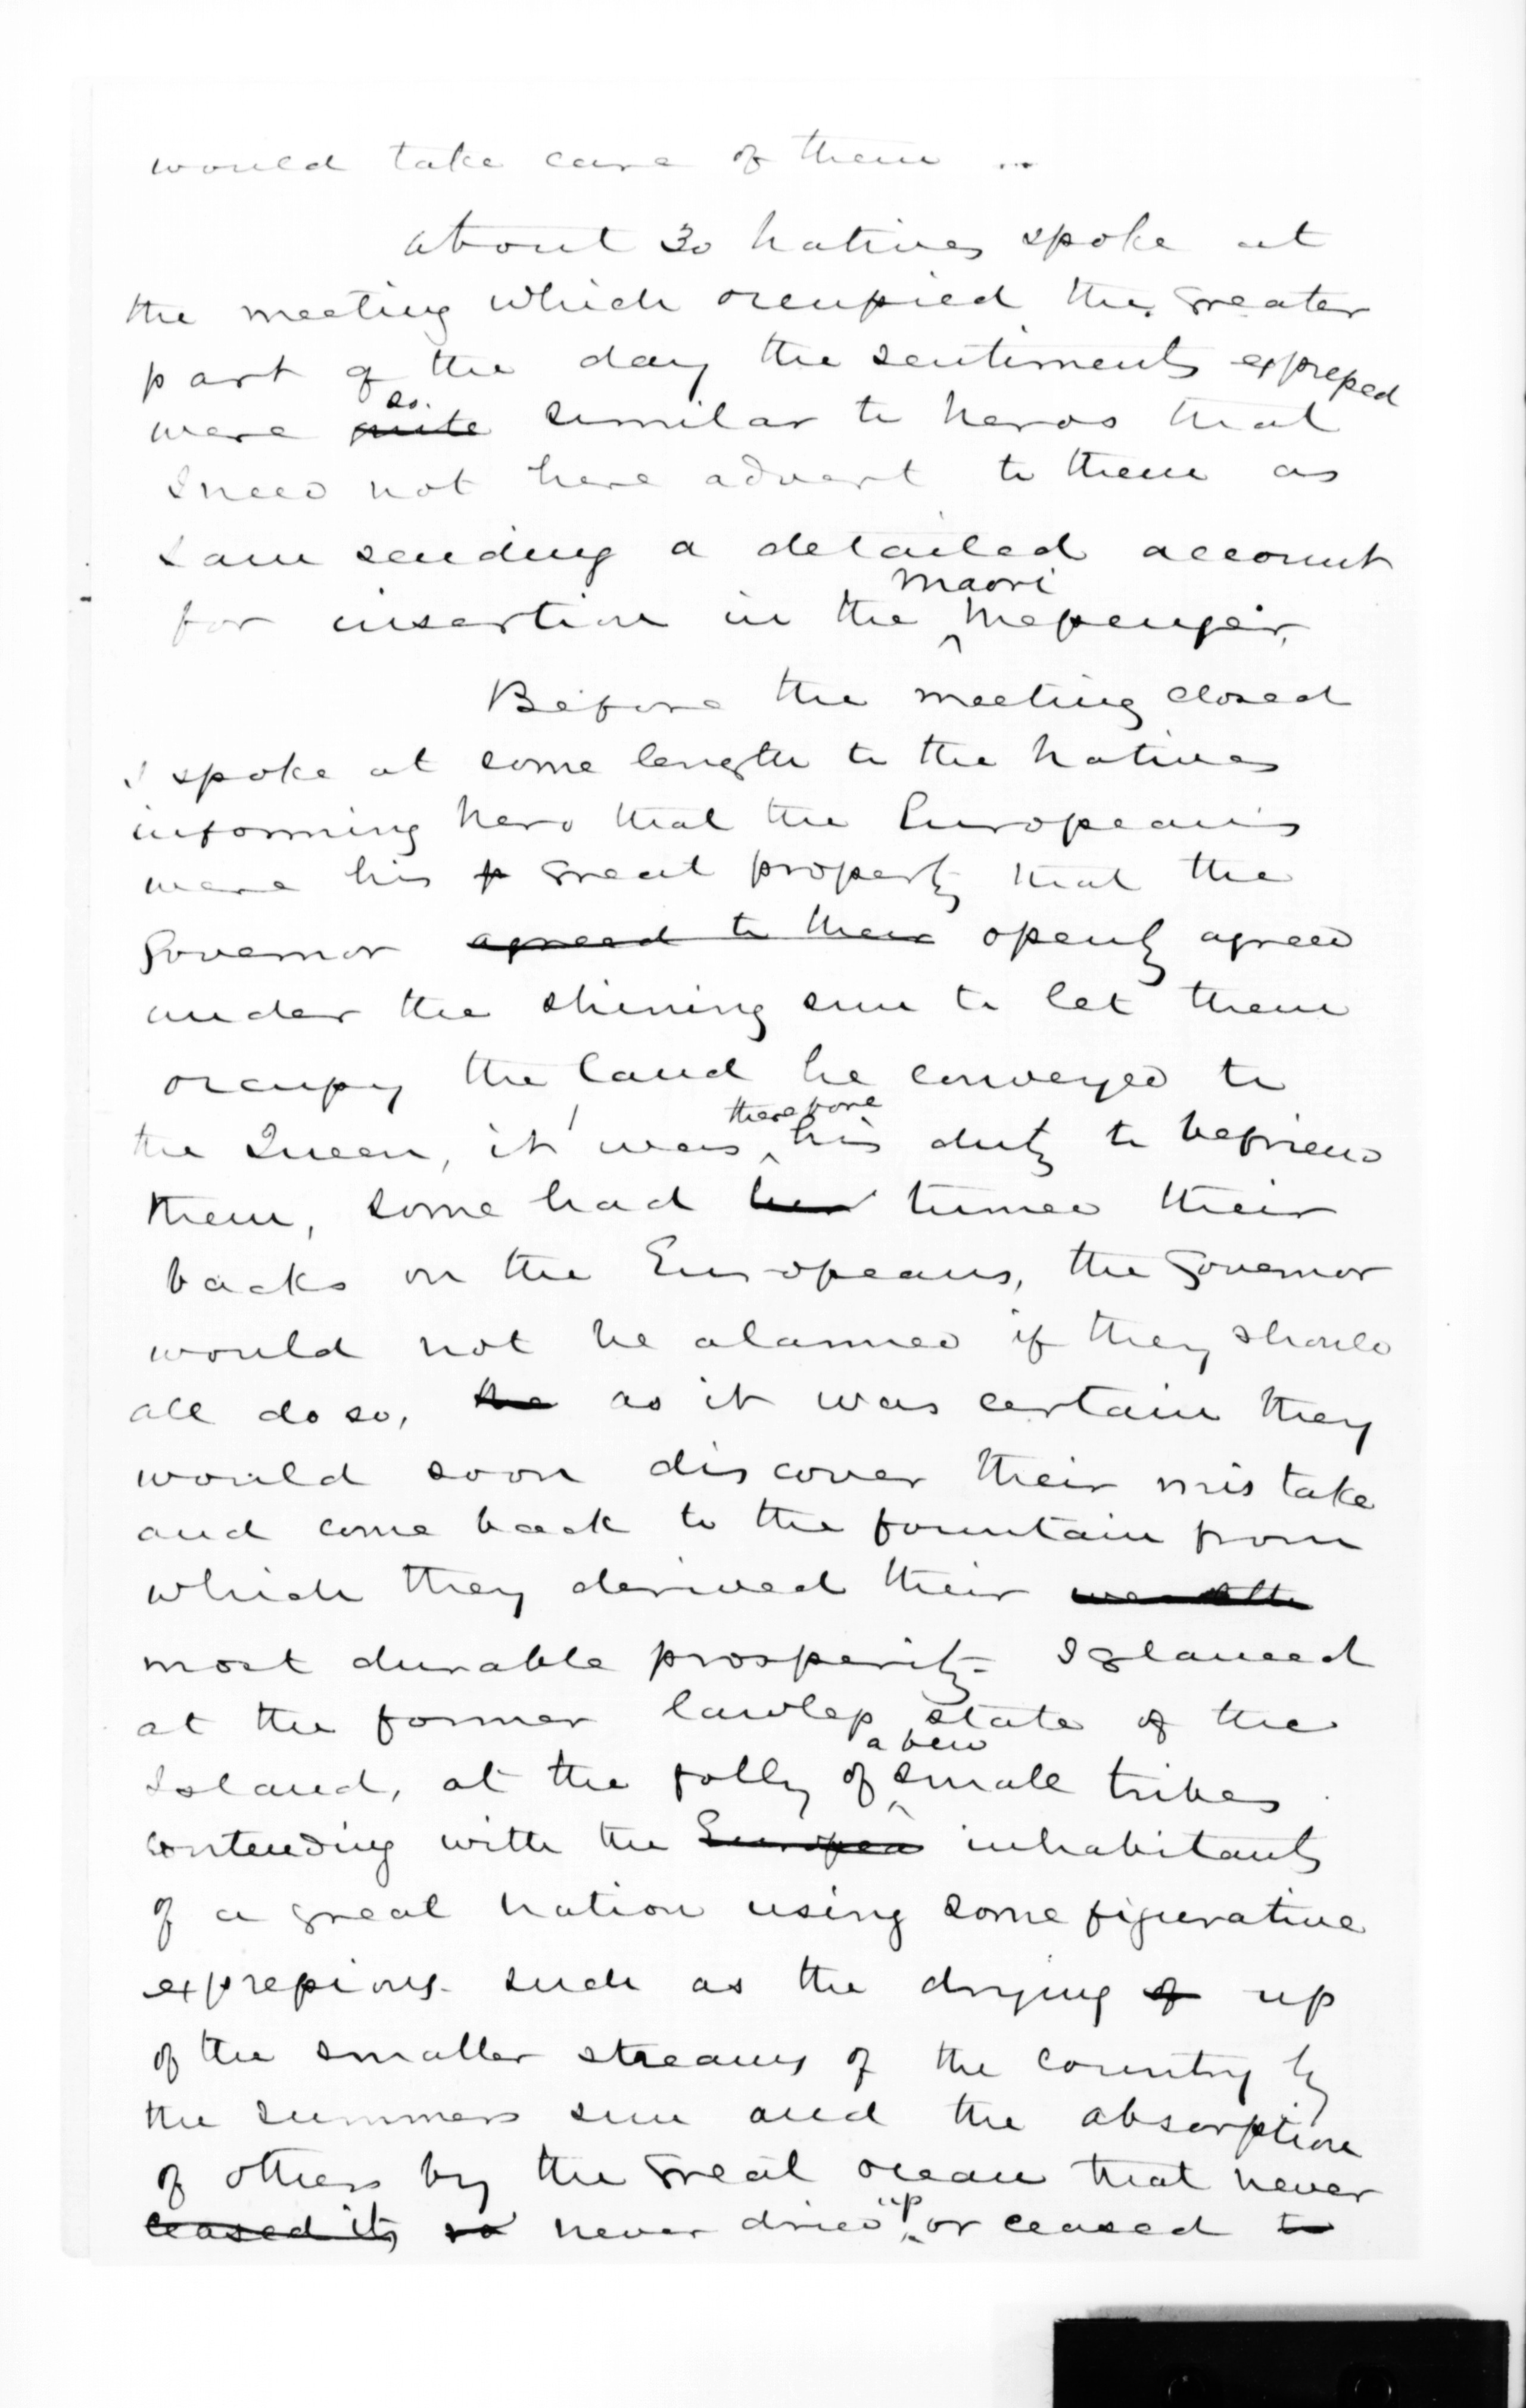 would take care of them ...
about 30 natives spoke at
the meeting which occupied the greater
part of the day the sentiments expressed
were quite so. similar to heros that
I need not here advert to them as
I am sending a detailed account
for insertion in the Maori Messenger,
Before the meeting closed
I spoke at some length to the natives
informing hero that the Europeans
were his p great property that the
Governor agreed to their openly agreed
under the shining sun to let them
occupy the land he conveyed to
the Queen, it was therefore his duty to befriend
them, some had her turned their
backs on the Europeans, the Governor
would not be alarmed if they should
all do so, he as it was certain they
would soon discover their mistake
and come back to the fountain from
which they derived their wealth
most durable prosperity - I glanced
at the former lawless state of the
Island, at the folly of a few small tribes
contending with the Europea inhabitants
of a great nation using some figurative
expressions such as the drying of up
of the smaller streams of the country by
the summers sun and the absorption
of others by the great ocean that never
ceased its so never dried up or ceased to